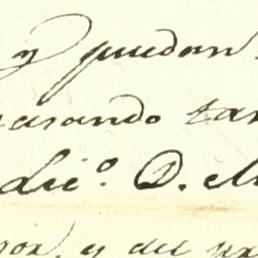 y puedan
asando tan
Lic.º D. M
por, y del